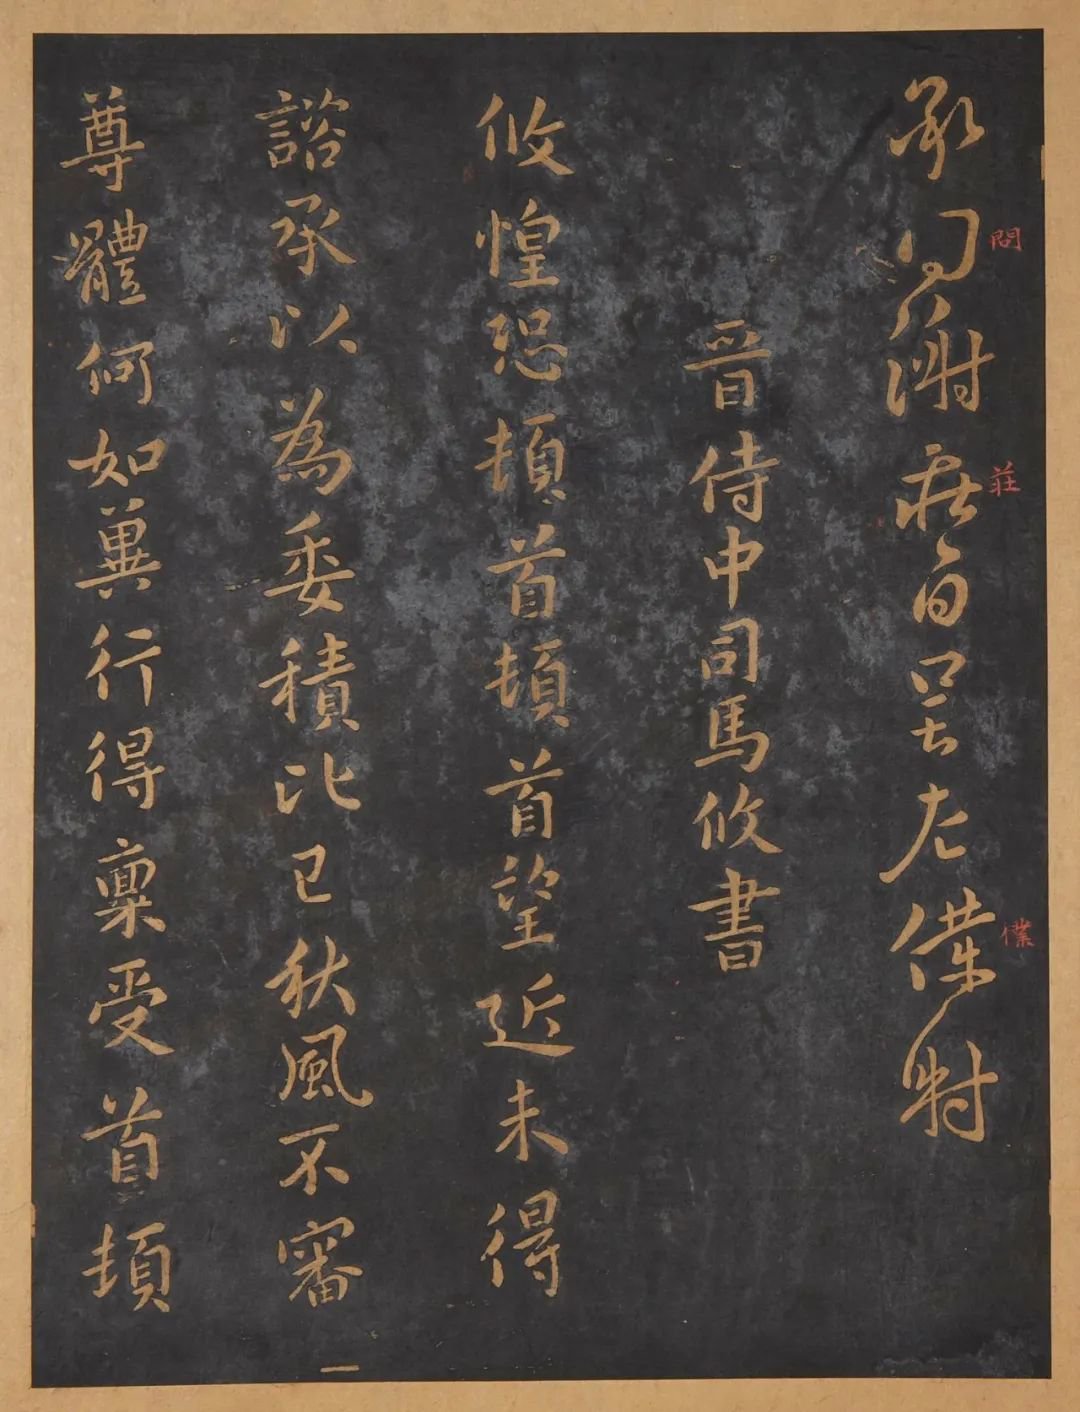 承問謝莊白呈左僕射
問
莊
僕
晉侍中司馬攸書
攸惶恐頓首頓首望近未得
諮承以為委積比已秋風不審
尊體何如冀行得稟受首頓